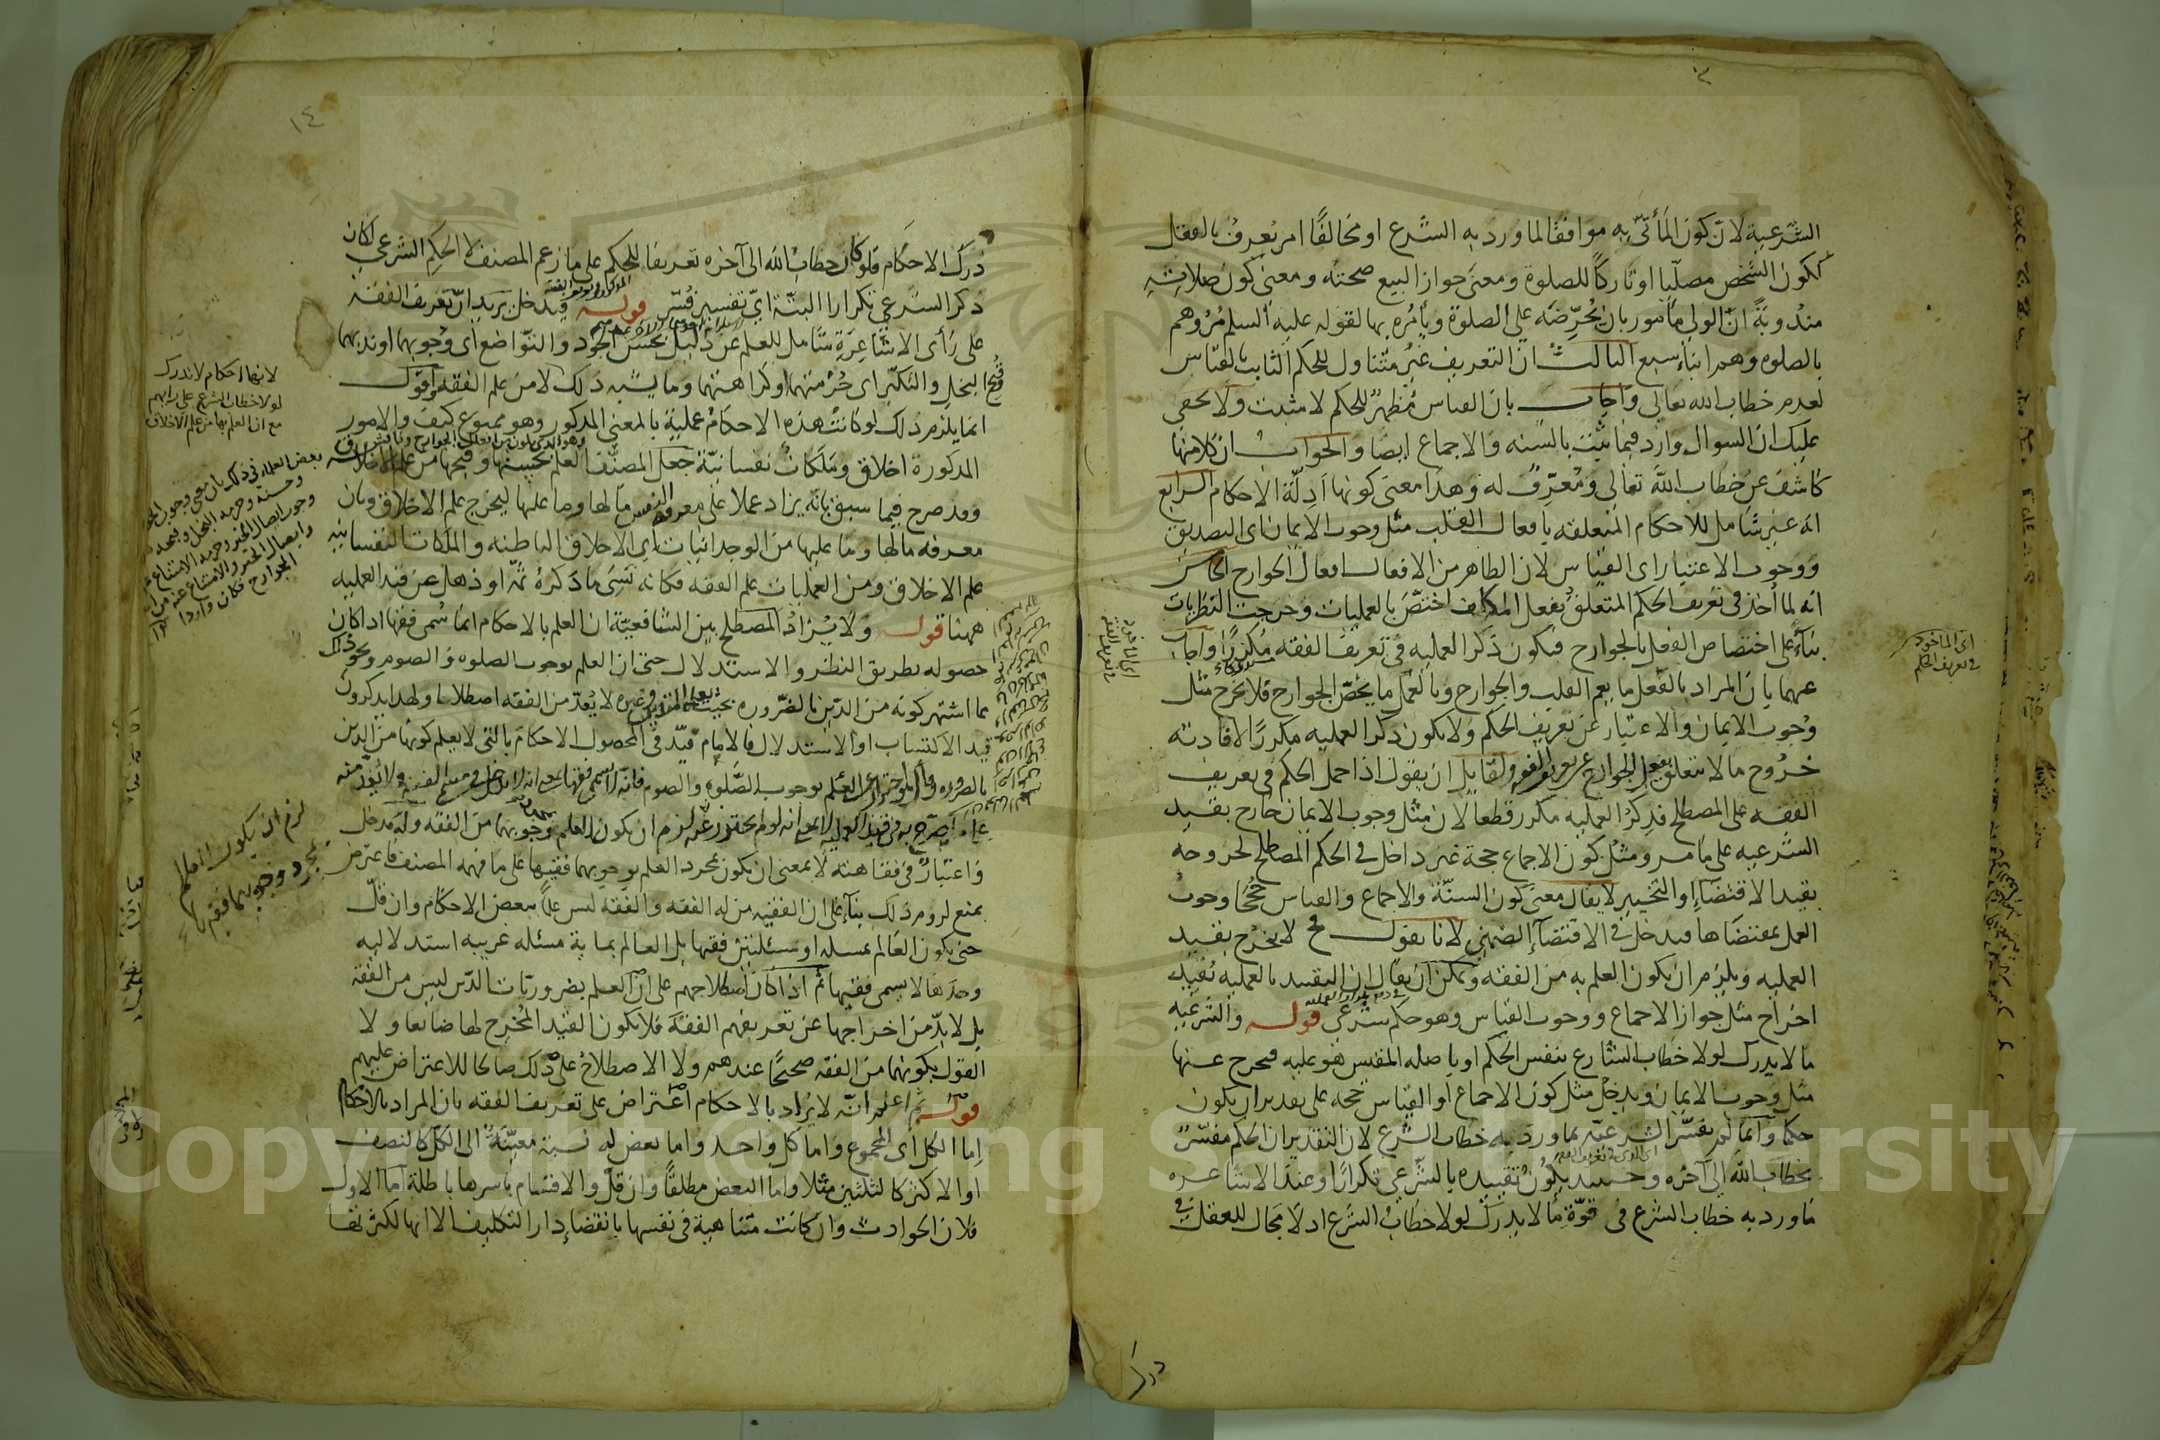 الشرعية لان كون المأتى به موافقا لما ورد به الشرع او مخالفا امر يعرف بالعقل
ككون الشخص مصليا او تاركا للصلوة ومعنى جواز البيع صحته ومعنى كون صلاته
مندوبة ان الولى مأمور بان يحرضه على الصلوة ويأمره بها لقوله عليه السلم مروهم
بالصلوة وهم ابناء سبع الثالث ان التعريف غير متناول للحكم الثابت بالقياس
لعدم خطاب الله تعالى واجاب بان القياس مظهر للحكم لا مثبت ولا يخفى
عليك ان السوال وارد فيما يثبت بالسنه والاجماع ايضا والجواب ان كلا منها
كاشف عن خطاب الله تعالى ومعرف له وهذا معنى كونها ادلة الاحكام الرابع
انه غير شامل للاحكام المتعلقه بافعال القلب مثل وجوب الايمان اى التصديق
ووجوب الاعتبار اى القياس لان الظاهر من الافعال افعال الجوارح الخامس
انه لما أخذ فى تعريف الحكم المتعلق بفعل المكلف اختص بالعمليات وخرجت النظريات
بناء على اختصاص الفعل بالجوارح فيكون ذكر العمليه فى تعريف الفقه مكررا واجاب
عنهما بان المراد بالفعل ما يعم القلب والجوارح وبالعمل ما يخص الجوارح فلا يخرج مثل
وجوب الايمان والاعتبار عن تعريف الحكم ولا يكون ذكر العمليه مكررا لافادته
خروج ما لا يتعلق بفعل الجوارح عن تعريف الفقه ولقائل ان يقول اذا حمل الحكم فى تعريف
الفقه على المصطلح فذكر العمليه مكرر قطعا لان مثل وجوب الايمان خارج بقيد
الشرعيه على ما مر ومثل كون الاجماع حجة غير داخل فى الحكم المصطلح لخروجه
بقيد الاقتضاء او التخيير لا يقال معنى كون السنة والاجماع والقياس حججا وجوب
العمل بمقتضاها فيدخل فى الاقتضاء الضمنى لانا نقول فح لا يخرج بقيد
العمليه ويلزم ان يكون العلم به من الفقه ويمكن ان يقال ان التقييد بالعمليه يفيد
اخراج مثل جواز الاجماع ووجوب القياس وهو حكم شرعى قوله والشرعيه
ما لا يدرك لولا خطاب الشارع بنفس الحكم او باصله المقيس هو عليه فيخرج عنها
مثل وجوب الايمان ويدخل مثل كون الاجماع او القياس حجه على تقدير ان يكون
حكما وانما لم يفسر الشرعيه بما ورد به خطاب الشرع لان التقدير ان الحكم مفسر
بخطاب الله الى آخره وحينئذ يكون تقييده بالشرعى تكرارا وعند الاشاعره
ما ورد به خطاب الشرع فى قوة ما لا يدرك لولا خطاب الشرع اذ لا مجال للعقل فى
درك
اى الماخوذ
فى تعريف الحكم
١٤
درك الاحكام فلو كان خطاب الله الى آخره تعريفا للحكم على ما زعم المصنف لا الحكم الشرعى لكان
ذكر الشرعى تكرارا البتة اى تفسير فسر قوله فيدخل يريد ان تعريف الفقه
على رأى الاشاعرة شامل للعلم عن دليل بحسن الجود والتواضع اى وجوبهما او ندبهما
وقبح البخل والتكبر اى حرمتهما او كراهتهما وما يشبه ذلك لا من علم الفقه واقول
انما يلزم ذلك لو كانت هذه الاحكام عملية بالمعنى المذكور وهو ممنوع كيف والامور
المذكورة اخلاق وملكات نفسانية جعل المصنف العلم بحسنها وقبحها من علم الاخلاق
وقد صرح فيما سبق بانه يزاد عملا على معرفة النفس ما لها وما عليها ليخرج علم الاخلاق وبان
معرفه ما لها وما عليها من الوجدانيات اى الاخلاق الباطنه والملكات النفسانيه
علم الاخلاق ومن العمليات علم الفقه فكانه نسى ما ذكره ثمه او ذهل عن قيد العمليه
ههنا قوله ولا يزاد المصطلح بين الشافعية ان العلم بالاحكام انما سمى فقها اذا كان
حصوله بطريق النظر والاستدلال حتى ان العلم بوجوب الصلوه والصوم ونحو ذلك
مما اشتهر كونه من الدين بالضروره بحيث يعلمه المتدين وغيره لا يعد من الفقه اصطلاحا ولهذا يذكرون
قيد الاكتساب او الاستدلال فالامام قيد فى المحصول الاحكام بالتى لا يعلم كونها من الدين
بالضروره وقال هو احتراز عن العلم بوجوب الصلوه والصوم فانه لا يسمى فقها
ان يكون العلم بوجوبهما من الفقه وله مدخل
واعتبار فى فقاهته لا بمعنى ان يكون مجرد العلم بوجوبهما فقيها على ما فهمه المصنف فاعترض
بمنع لزوم ذلك بناء على ان الفقيه من له الفقه والفقه ليس علما ببعض الاحكام وان قل
حتى يكون العالم بمسئله او مسئلتين فقيها بل العالم بماية مسئله غريبه استدلاليه
وحدها لا يسمى فقيها ثم اذا كان اصطلاحهم على ان العلم بضروريات الدين ليس من الفقه
بل لا بد من اخراجها عن تعريفهم الفقه فلا يكون القيد المخرج لها ضايعا ولا
القول بكونها من الفقه صحيحا عندهم ولا الاصطلاح على ذلك صالحا للاعتراض عليهم
قوله ثم اعلم انه لا يراد بالاحكام اعتراض على تعريف الفقه بان المراد بالاحكام
اما الكل اى المجموع واما كل واحد واما بعض له نسبة معينة الى الكل كالنصف
او الاكثر كالثلثين مثلا واما البعض مطلقا وان قل والاقسام باسرها باطلة اما الاول
فلان الحوادث وان كانت متناهية فى نفسها بانقضاء دار التكليف الا انها لكثرتها
لانها احكام لا تدرك
لولا خطاب الشرع على رايهم
مع ان العلم بها من علم الاخلاق
لزم ان يكون العالم
بمجرد وجوبهما فقيها
Copyright © King Saud University